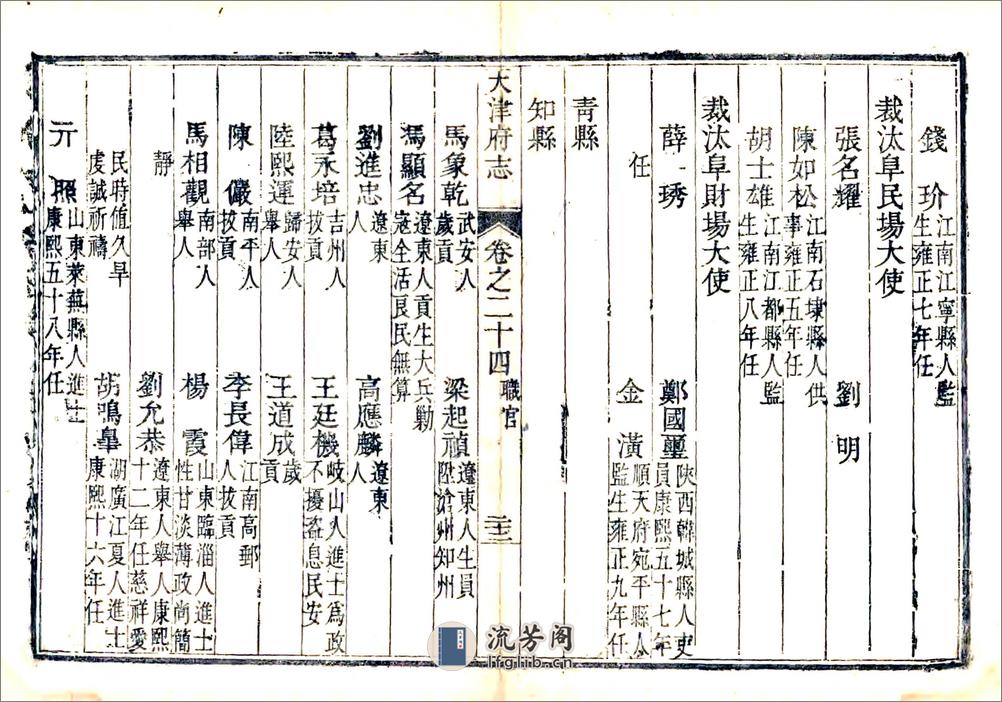 錢　玠 江南江寧縣人監生雍正七年任
裁汰阜民場大使
張名耀　劉　明
陳如松 江南石埭縣人供事雍正五年任
胡士雄 江南江都縣人監生雍正八年任
裁汰阜財場大使
薛　琇　鄭國璽 陝西韓城縣人吏員康熙五十七年
任　金　潢 順天府宛平縣人監生雍正九年任
青縣
知縣
天津府志　卷之二十四　職官　二十三
馬象乾 武安人歲貢　梁起禎 遼東人生員陞滄州知州
馮顯名 遼東人貢生大兵勦寇全活良民無算
劉進忠 遼東人　高應麟 遼東人
葛永培 吉州人拔貢　王廷機 岐山人進士為政不擾盜息民安
陸熙運 歸安人舉人　王道成 歲貢
陳　儼 南平人拔貢　李長偉 江南高郵人拔貢
馬相觀 南部人舉人　楊　霞 山東臨淄人進士性甘淡薄政尚簡
靜　劉允恭 遼東人舉人康熙十二年任慈祥愛
民時值久旱虔誠祈禱　胡鳴皋 湖廣江夏人進士康熙十六年任
亓　煦 山東萊蕪縣人進士康熙五十八年任
流芳阁
lfglib.cn